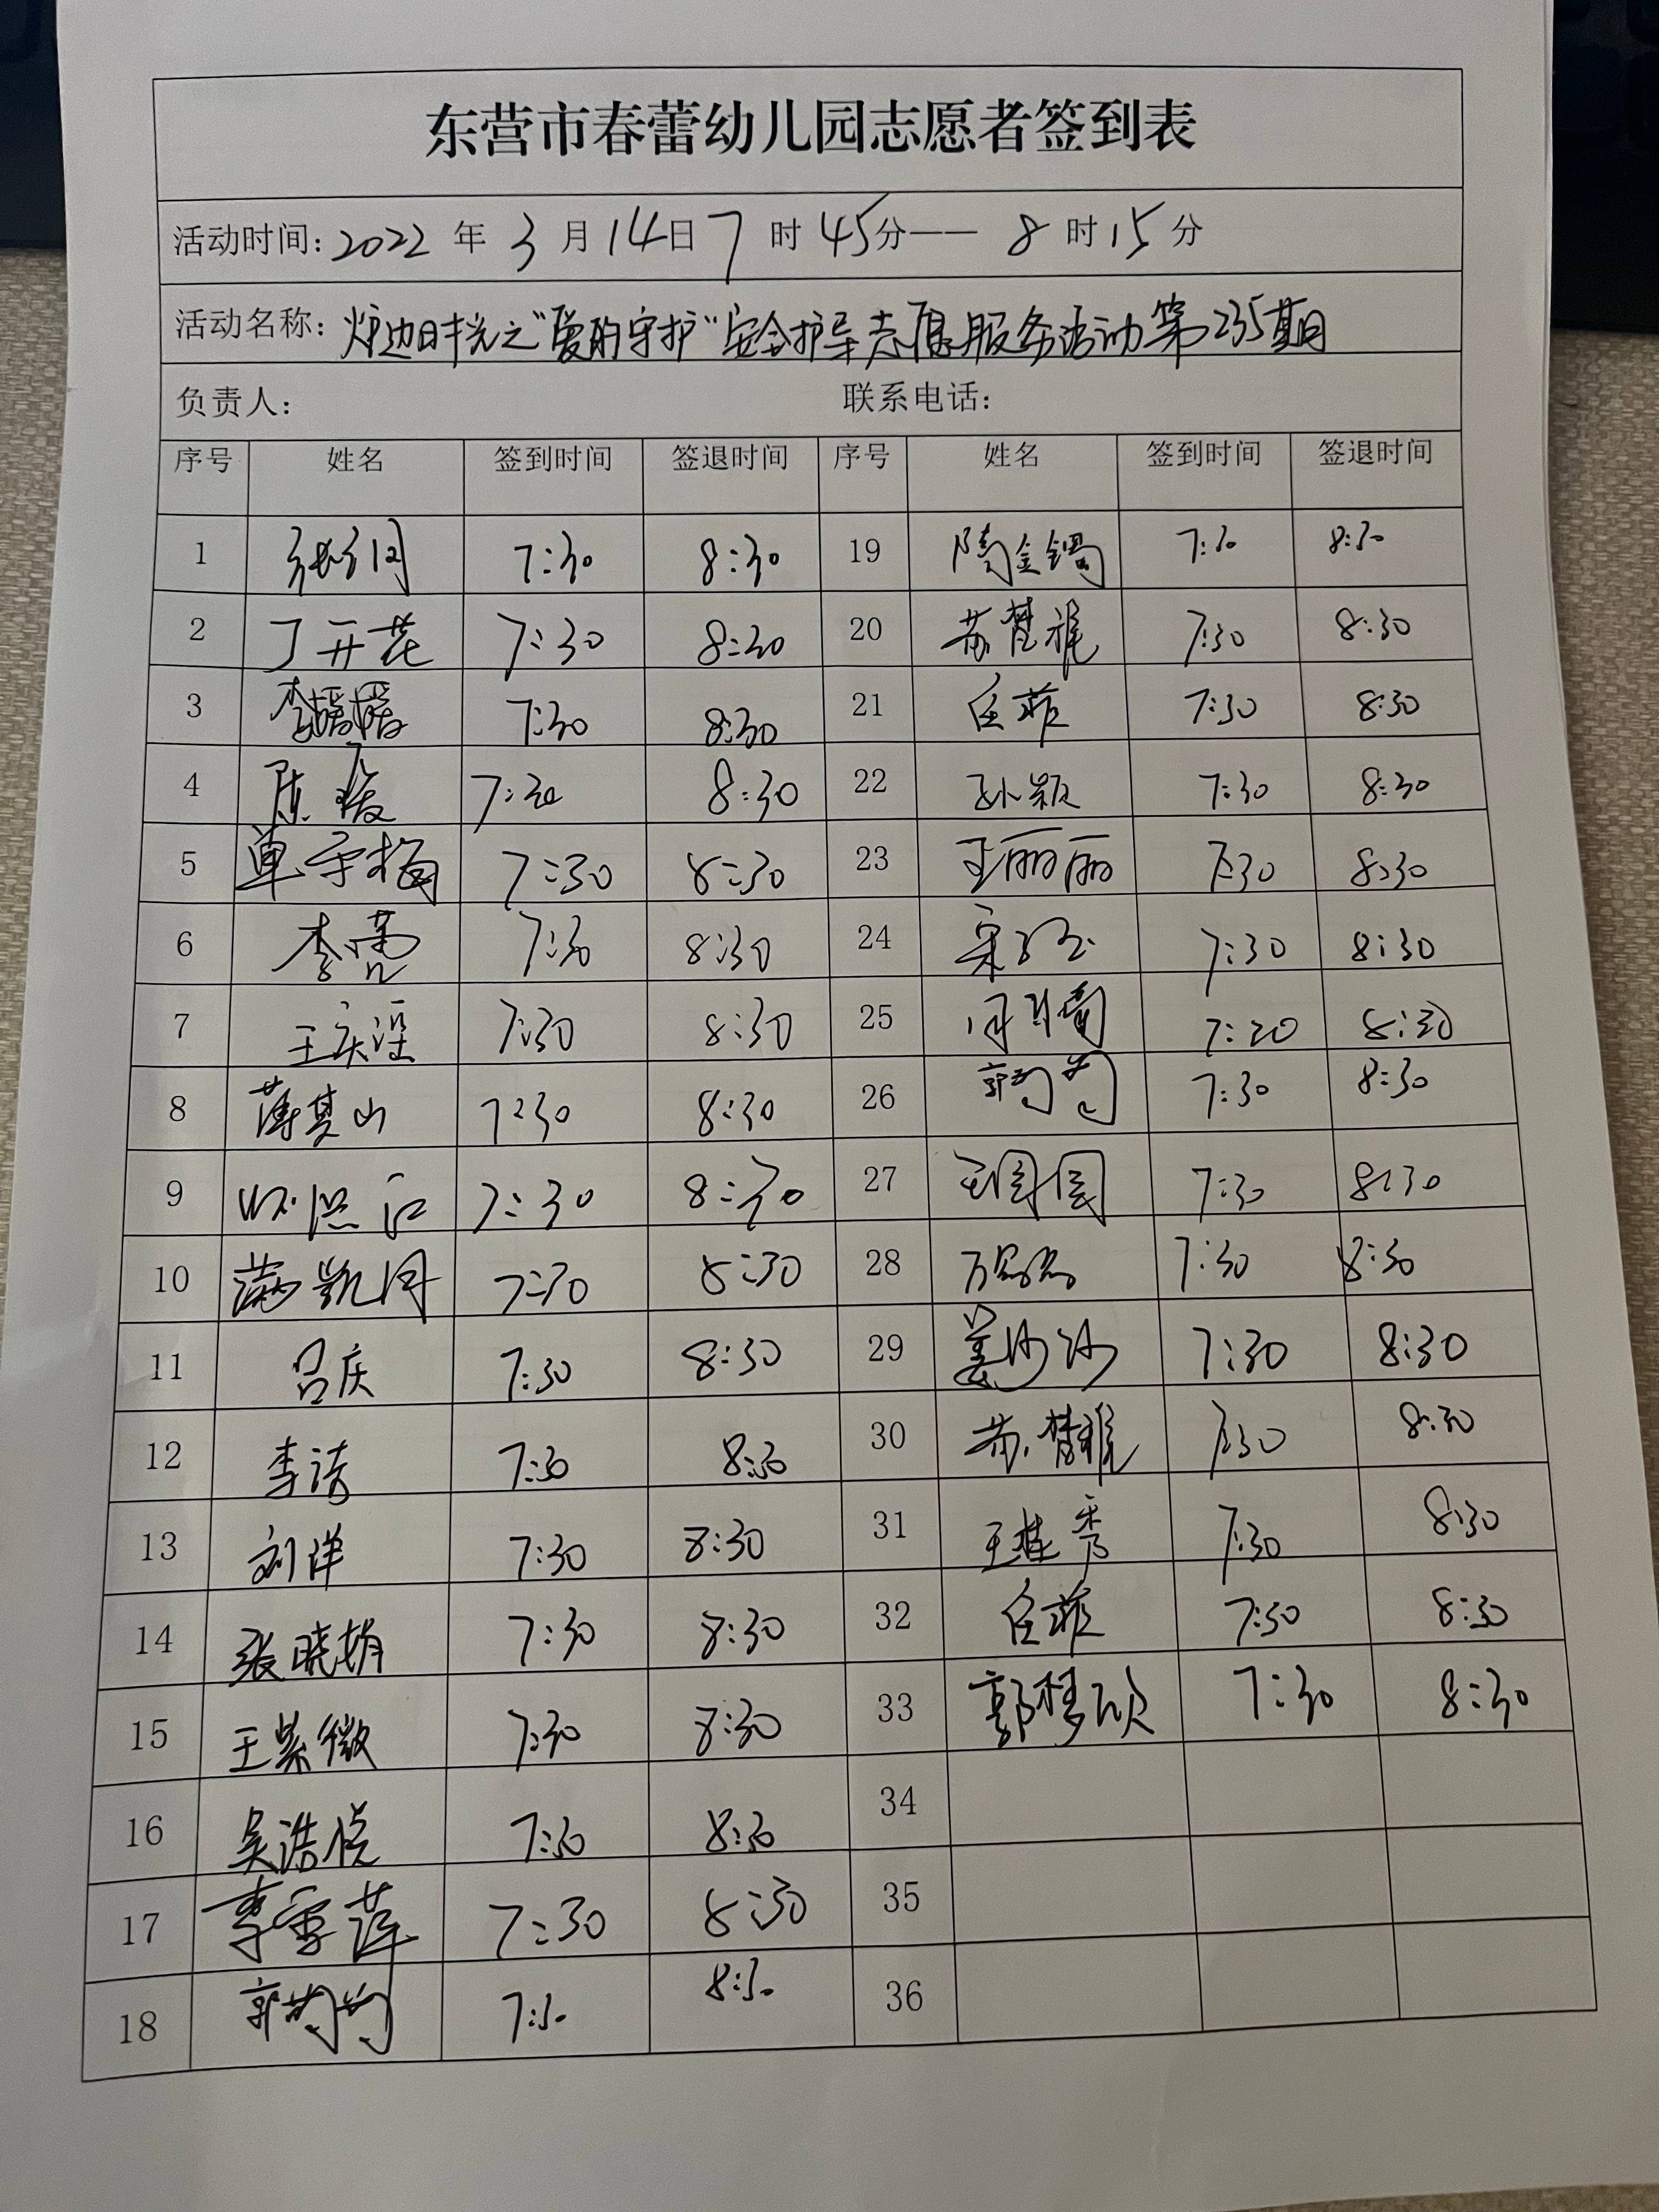 东营市春蕾幼儿园志愿者签到表
活动时间:2022 年 3 月 14日 7 时 45分—— 8 时 15 分
活动名称:炉边时光之"爱的守护"安全护导志愿服务活动第235期
负责人: 联系电话:
序号 姓名 签到时间 签退时间 序号 姓名 签到时间 签退时间
1 7:30 8:30 19 7:30 8:30
2 丁开花 7:30 8:30 20 苏楚雅 7:30 8:30
3 李媛媛 7:30 8:30 21 任菲 7:30 8:30
4 陈 7:30 8:30 22 孙颖 7:30 8:30
5 单守梅 7:30 8:30 23 王丽丽 7:30 8:30
6 李 7:30 8:30 24 宋 7:30 8:30
7 王庆 7:30 8:30 25 7:20 8:30
8 薄其山 7:30 8:30 26 郭菊菊 7:30 8:30
9 7:30 8:30 27 王圆圆 7:30 8:30
10 凯月 7:30 8:30 28 万 7:30 8:30
11 吕庆 7:30 8:30 29 姜沙沙 7:30 8:30
12 李洁 7:30 8:30 30 苏楚雅 7:30 8:30
13 刘洋 7:30 8:30 31 王桂秀 7:30 8:30
14 张晓娟 7:30 8:30 32 任菲 7:30 8:30
15 王紫微 7:30 8:30 33 郭梦欣 7:30 8:30
16 吴浩悦 7:30 8:30 34
17 李雪莲 7:30 8:30 35
18 郭菊菊 7:30 8:30 36